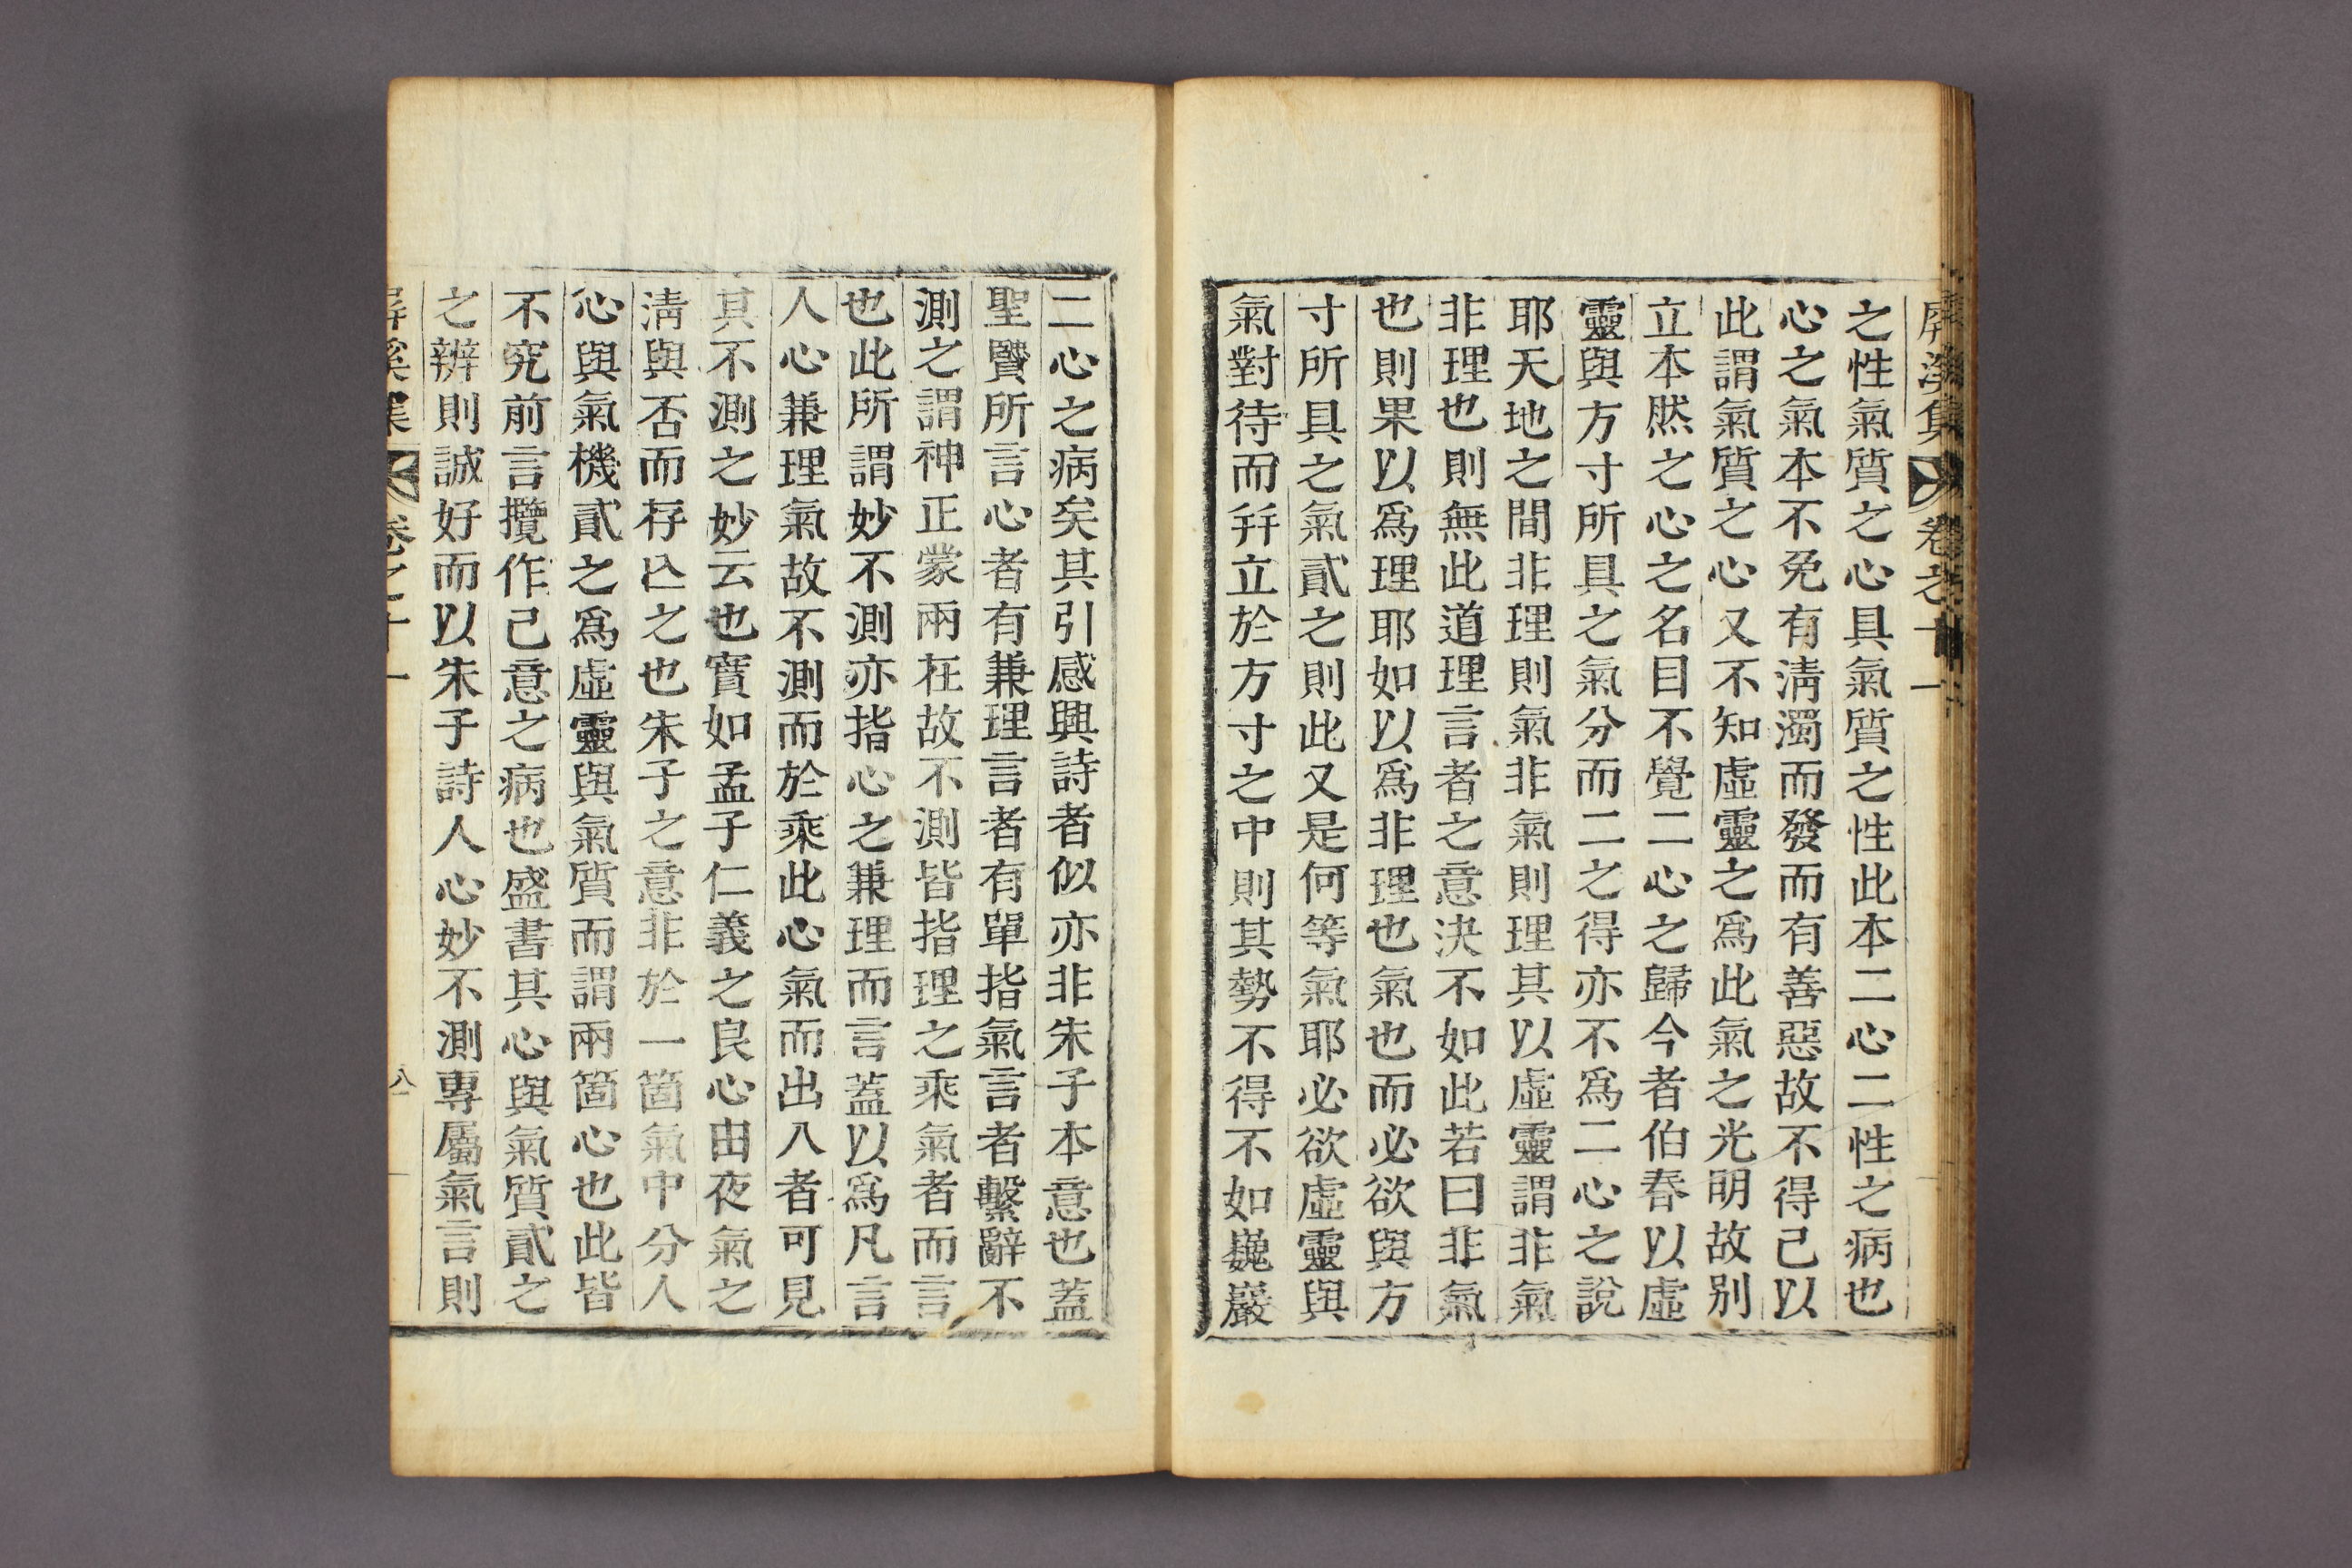 屛溪集 卷之十一
之性氣質之心具氣質之性此本二心二性之病也
心之氣本不免有淸濁而發而有善惡故不得已以
此謂氣質之心又不知虛靈之爲此氣之光明故別
立本然之心之名目不覺二心之歸今者伯春以虛
靈與方寸所具之氣分而二之得亦不爲二心之說
耶天地之間非理則氣非氣則理其以虛靈謂非氣
非理也則無此道理言者之意決不如此若曰非氣
也則果以爲理耶如以爲非理也氣也而必欲與方
寸所具之氣貳之則此又是何等氣耶必欲虛靈與
氣對待而幷立於方寸之中則其勢不得不如巍巖
二心之病矣其引感興詩者似亦非朱子本意也蓋
聖贒所言心者有兼理言者有單指氣言者繫辭不
測之謂神正蒙兩在故不測皆指理之乘氣者而言
也此所謂妙不測亦指心之兼理而言蓋以爲凡言
人心兼理氣故不測而於乘此心氣而出入者可見
其不測之妙云也實如孟子仁義之良心由夜氣之
淸與否而存亡之也朱子之意非於一箇氣中分人
心與氣機貳之爲虛靈與氣質而謂兩箇心也此皆
不究前言攬作己意之病也盛書其心與氣質貳之
之辨則誠好而以朱子詩人心妙不測專屬氣言則
屛溪集 卷之十一 八